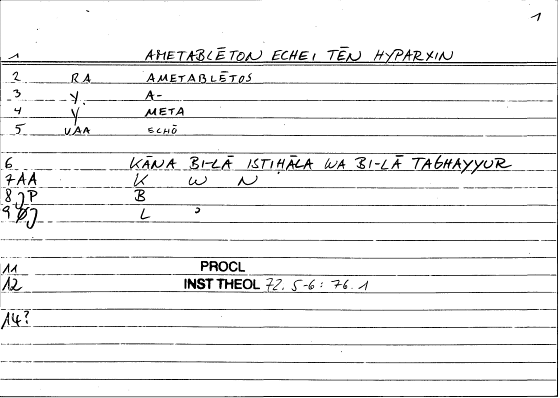 1
1 AMETABLĒTON ECHEI TĒN HYPARXIN
2 RA AMETABLĒTOS
3 Y. A-
4 Y META
5 VAA ECHŌ
6 KĀNA BI-LĀ ISTIḤĀLA WA BI-LĀ TAGHAYYUR
7AA K W N
8JP B
9 J L ʾ
11 PROCL
12 INST THEOL 72. 5-6 : 76. 1
14?